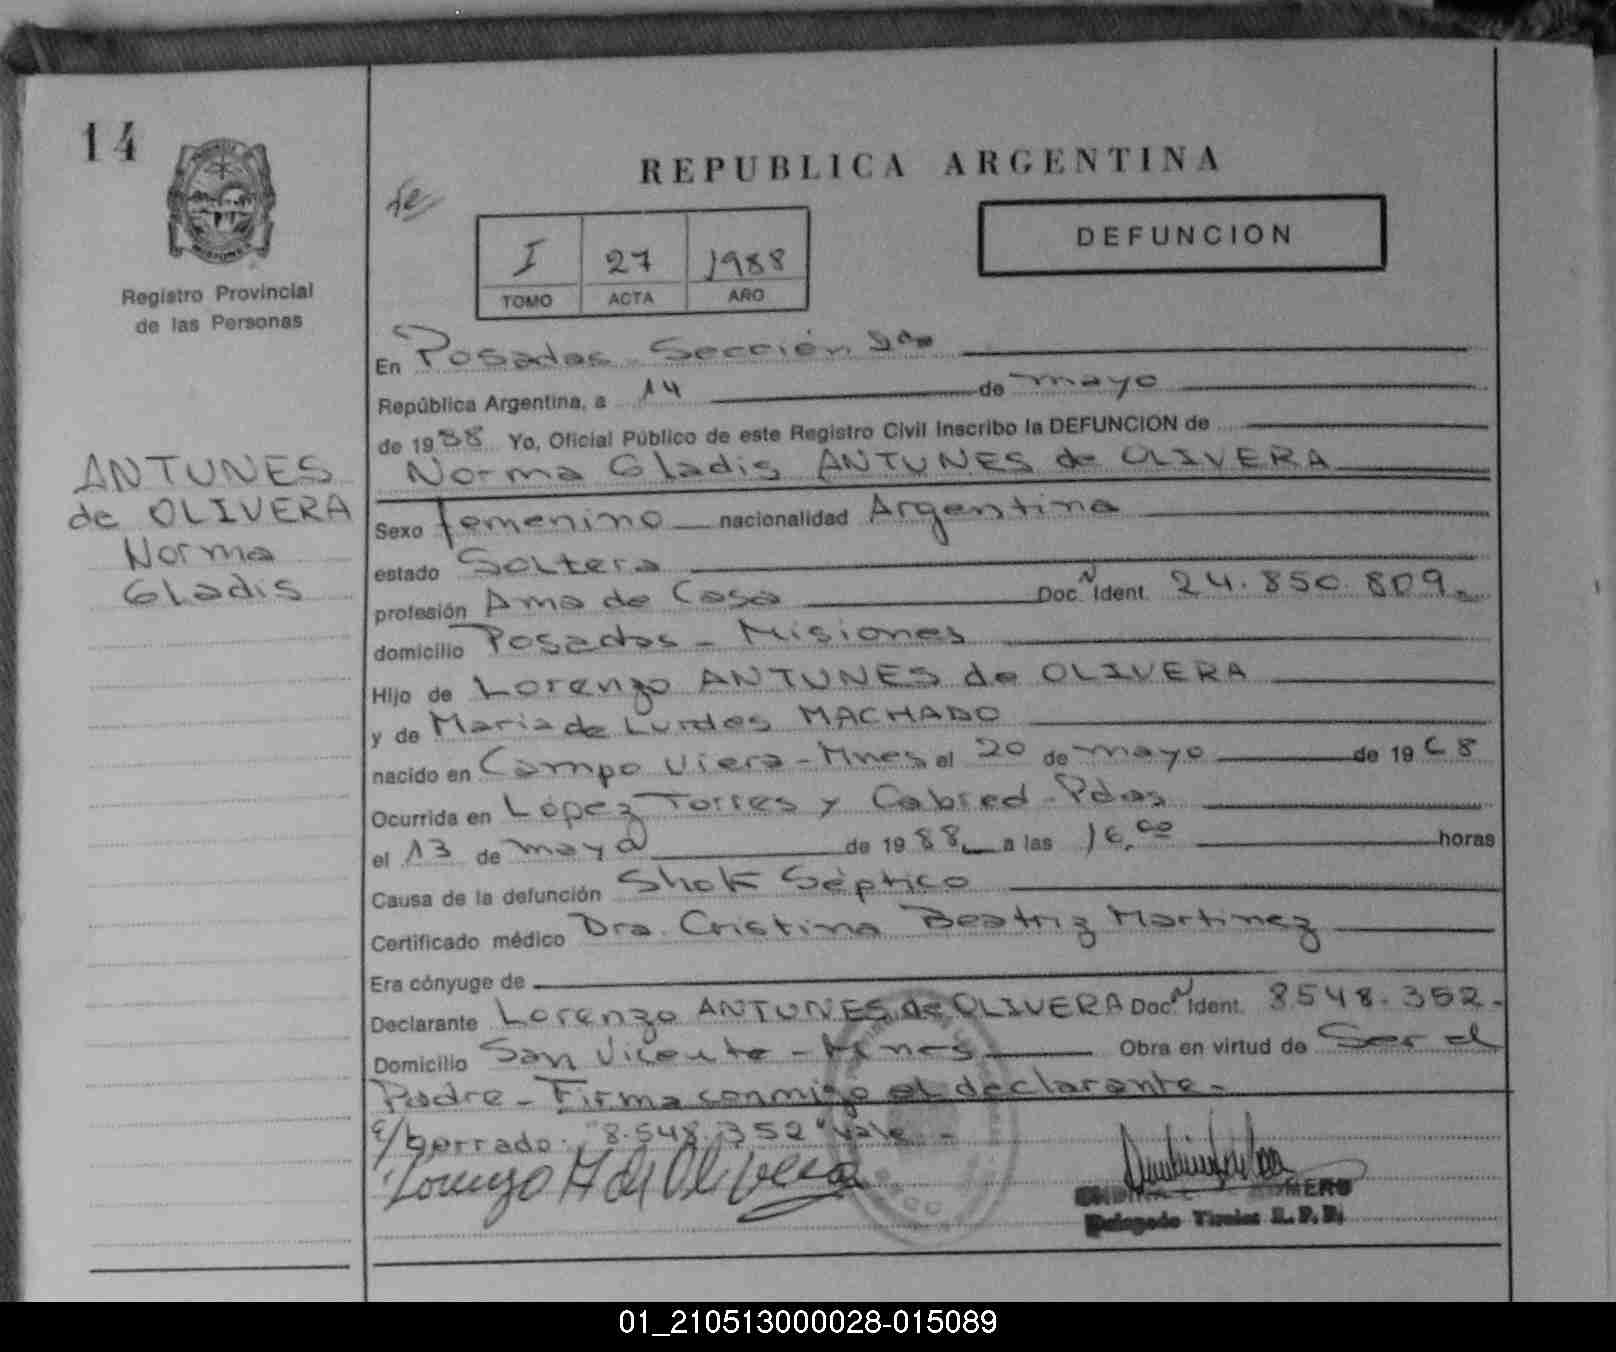 14
REPUBLICA ARGENTINA
DEFUNCION
I 27 1988
TOMO ACTA AÑO
Registro Provincial
de las Personas
ANTUNES
de OLIVERA
Norma
Gladis
En Posadas - Sección
República Argentina, a 14 de mayo
de 1988 Yo, Oficial Público de este Registro Civil Inscribo la DEFUNCION de
Norma Gladis ANTUNES de OLIVERA
Sexo femenino nacionalidad Argentina
estado Soltera
profesión Ama de Casa Doc. N Ident. 24.850.809
domicilio Posadas - Misiones
Hijo de Lorenzo ANTUNES de OLIVERA
y de Maria de Lurdes MACHADO
nacido en Campo Viera - Mnes el 20 de mayo de 1968
Ocurrida en López Torres y Cabred - Pdas
el 13 de mayo de 1988 a las 16,00 horas
Causa de la defunción Shok Séptico
Certificado médico Dra. Cristina Beatriz Martinez
Era cónyuge de
Declarante Lorenzo ANTUNES de OLIVERA Doc. N Ident. 8.548.352.
Domicilio San Vicente - Mnes Obra en virtud de Ser el
Padre - Firma conmigo el declarante -
E/borrado: "8.548.352" Vale. -
Lorenzo A de Olivera
ROMERO
Delegado Titular R. P. P.
01_210513000028-015089